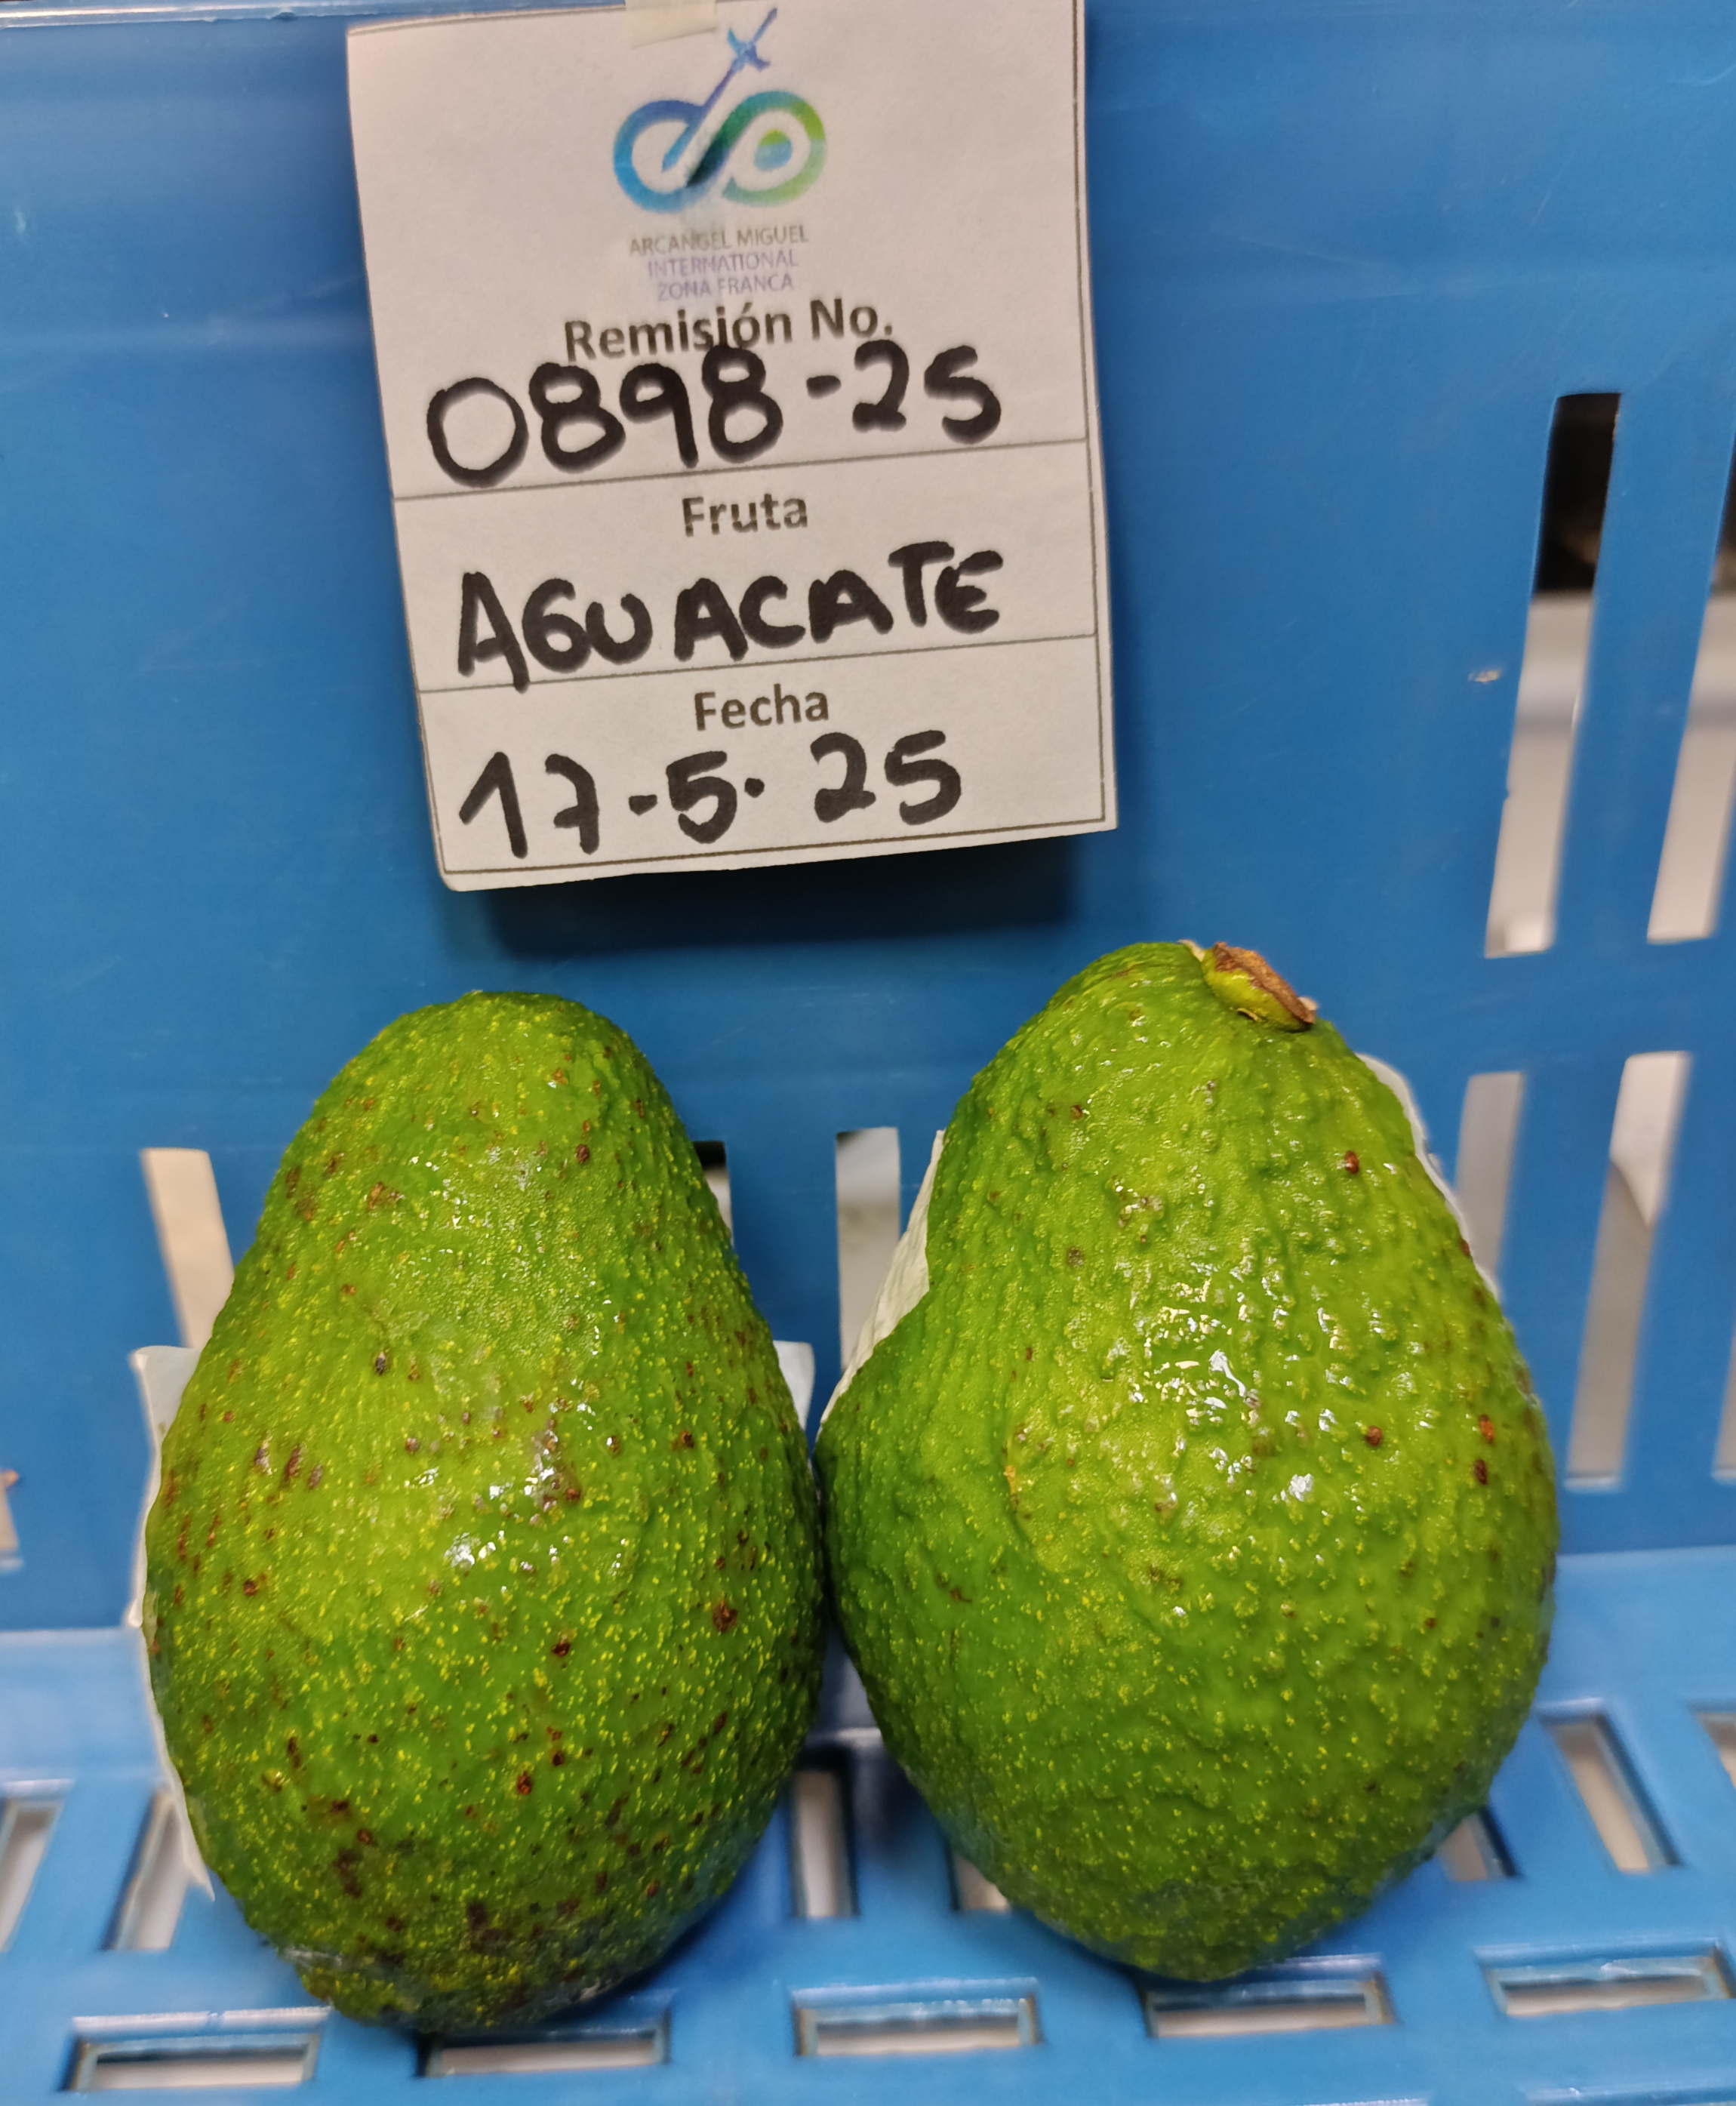 ARCANGEL MIGUEL
INTERNATIONAL
ZONA FRANCA
Remisión No.
0898-25
Fruta
AGUACATE
Fecha
17-5-25